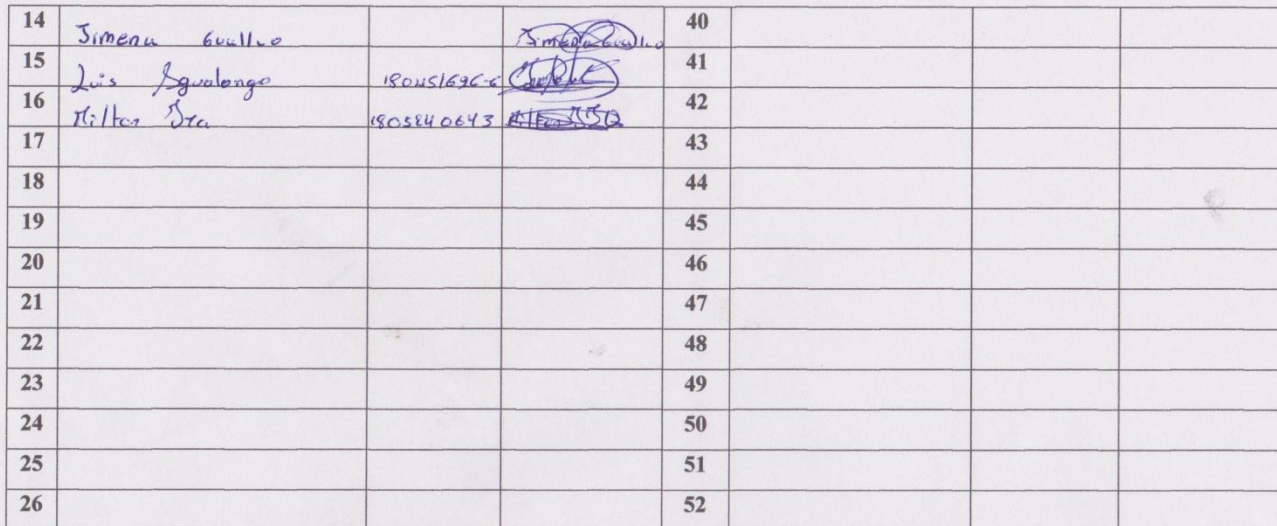 14 Jimena Guallo Jimena Guallo 40
15 Luis Agualongo 180451696-6 41
16 Milton 1805840643 42
17 43
18 44
19 45
20 46
21 47
22 48
23 49
24 50
25 51
26 52